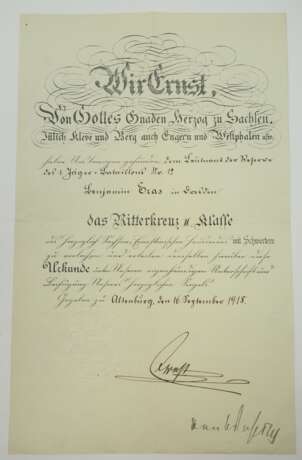 Wir Ernst,
Von Gottes Gnaden Herzog zu Sachsen,
Jülich Kleve und Berg auch Engern und Westphalen
haben Uns bewogen gefunden, dem Leutnant der Reserve
des 1. Jäger-Bataillons Nr. 12
Benjamin in Dresden
das Ritterkreuz II. Klasse
des Herzoglich Sachsen Ernestinischen Hausordens mit Schwertern
zu verleihen und erteilen demselben hierüber diese
Urkunde unter Unserer eigenhändigen Unterschrift und
Beifügung Unseres Herzoglichen Siegels.
Gegeben zu Altenburg, den 16. September 1918.
Ernst